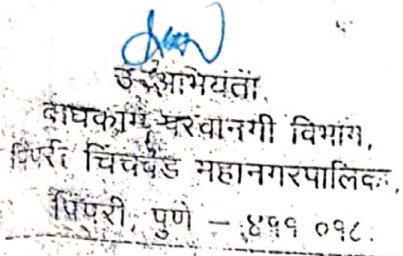 उपअभियंता
बांधकाम परवानगी विभाग,
पिंपरी चिंचवड महानगरपालिका,
पिंपरी, पुणे - ४११ ०१८.